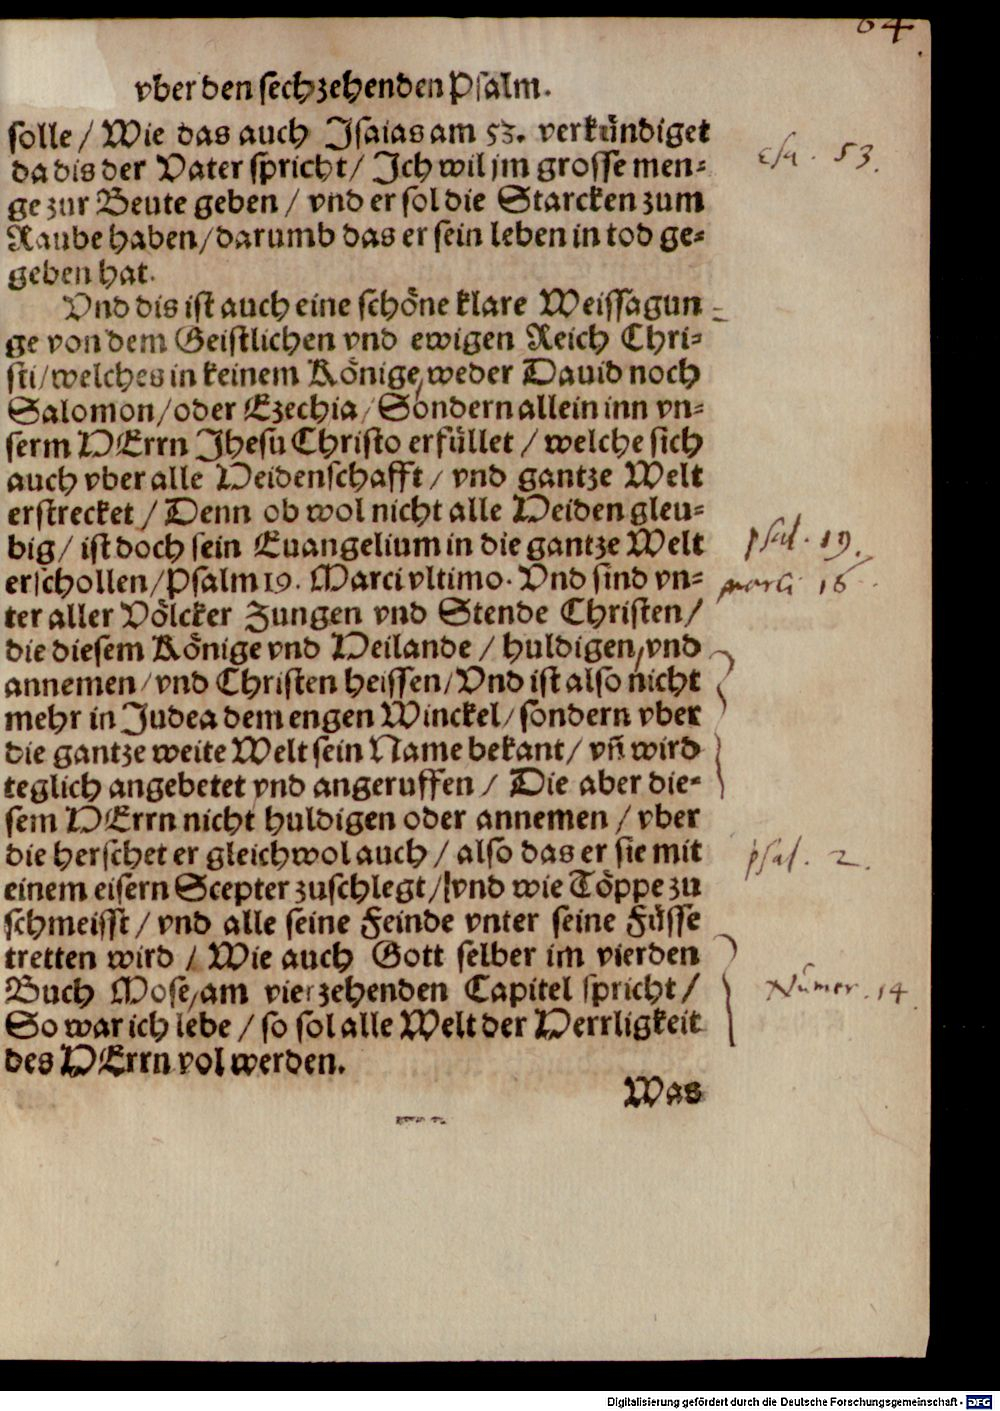 64
vber den sechzehenden Psalm.
solle / Wie das auch Jsaias am 53. verkündiget
da dis der Vater spricht / Jch wil jm grosse men=
ge zur Beute geben / vnd er sol die Starcken zum
Raube haben / darumb das er sein leben in tod ge=
geben hat.
Esa. 53.
Vnd dis ist auch eine schöne klare Weissagun
ge von dem Geistlichen vnd ewigen Reich Chri=
sti / welches in keinem Könige, weder Dauid noch
Salomon / oder Ezechia / Sondern allein inn vn=
serm HErrn Jhesu Christo erfüllet / welche sich
auch vber alle Heidenschafft / vnd gantze Welt
erstrecket / Denn ob wol nicht alle Heiden gleu=
big / ist doch sein Euangelium in die gantze Welt
erschollen / Psalm 19. Marci vltimo. Vnd sind vn=
ter aller Völcker Zungen vnd Stende Christen /
psal. 19.
marci 16
die diesem Könige vnd Heilande / huldigen, vnd
annemen / vnd Christen heissen / Vnd ist also nicht
mehr in Judea dem engen Winckel / sondern vber
die gantze weite Welt sein Name bekant / vñ wird
teglich angebetet vnd angeruffen / Die aber die=
sem HErrn nicht huldigen oder annemen / vber
die herschet er gleichwol auch / also das er sie mit
einem eisern Scepter zuschlegt / vnd wie Töppe zu
schmeisst / vnd alle seine Feinde vnter seine Füsse
psal. 2.
tretten wird / Wie auch Gott selber im vierden
Buch Mose, am vierzehenden Capitel spricht /
So war ich lebe / so sol alle Welt der Herrligkeit
des HErrn vol werden.
Numer. 14
Was
Digitalisierung gefördert durch die Deutsche Forschungsgemeinschaft - DFG